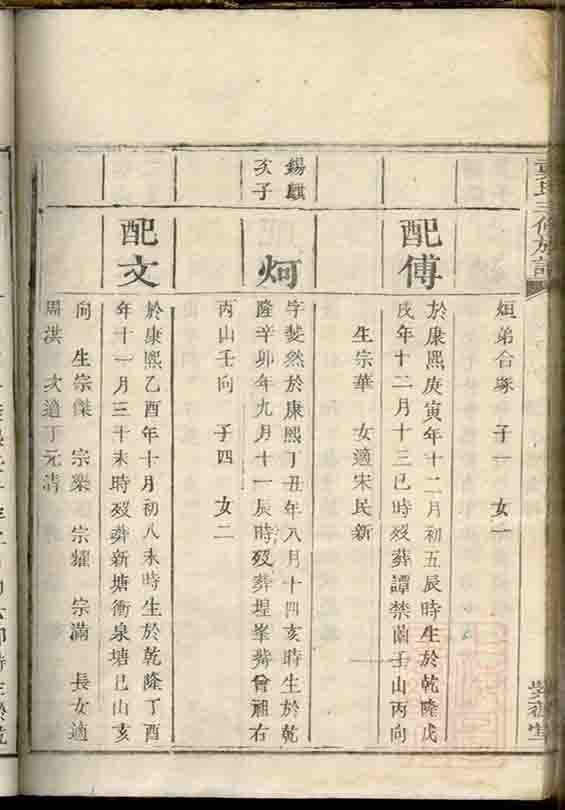 氏三修族譜
烜弟合塚 子一 女一
配傅
於康熙庚寅年十二月初五辰時生於乾隆戊
戌年十二月十三巳時歿葬譚禁崗壬山丙向
生宗華 女適宋民新
錫麒
次子
炯
字斐然於康熙丁丑年八月十四亥時生於乾
隆辛卯年九月十一辰時歿葬埕峯嶺曾祖右
丙山壬向 子四 女二
配文
於康熙乙酉年十月初八未時生於乾隆丁酉
年十一月三十未時歿葬新塘衝泉塘巳山亥
向 生宗傑 宗樂 宗耀 宗滿 長女適
周洪 次適丁元清